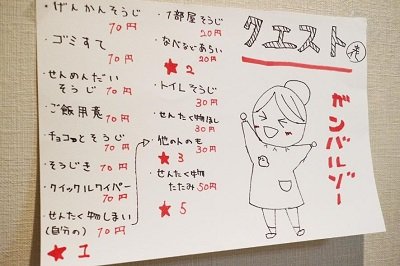 ・げんかんそうじ
10円
・ゴミすて
10円
・せんめんだい
そうじ 10円
・ご飯用意
10円
・チョコっとそうじ
10円
・そうじき 10円
・クイックルワイパー
10円
・せんたく物しまい
(自分の) 10円
★1
・1部屋そうじ
20円
・なべなどあらい
20円
★2
・トイレそうじ
30円
・せんたく物ほし
30円
・他のんのも
30円
★3
・せんたく物
たたみ 50円
★5
クエスト
ガンバルゾー